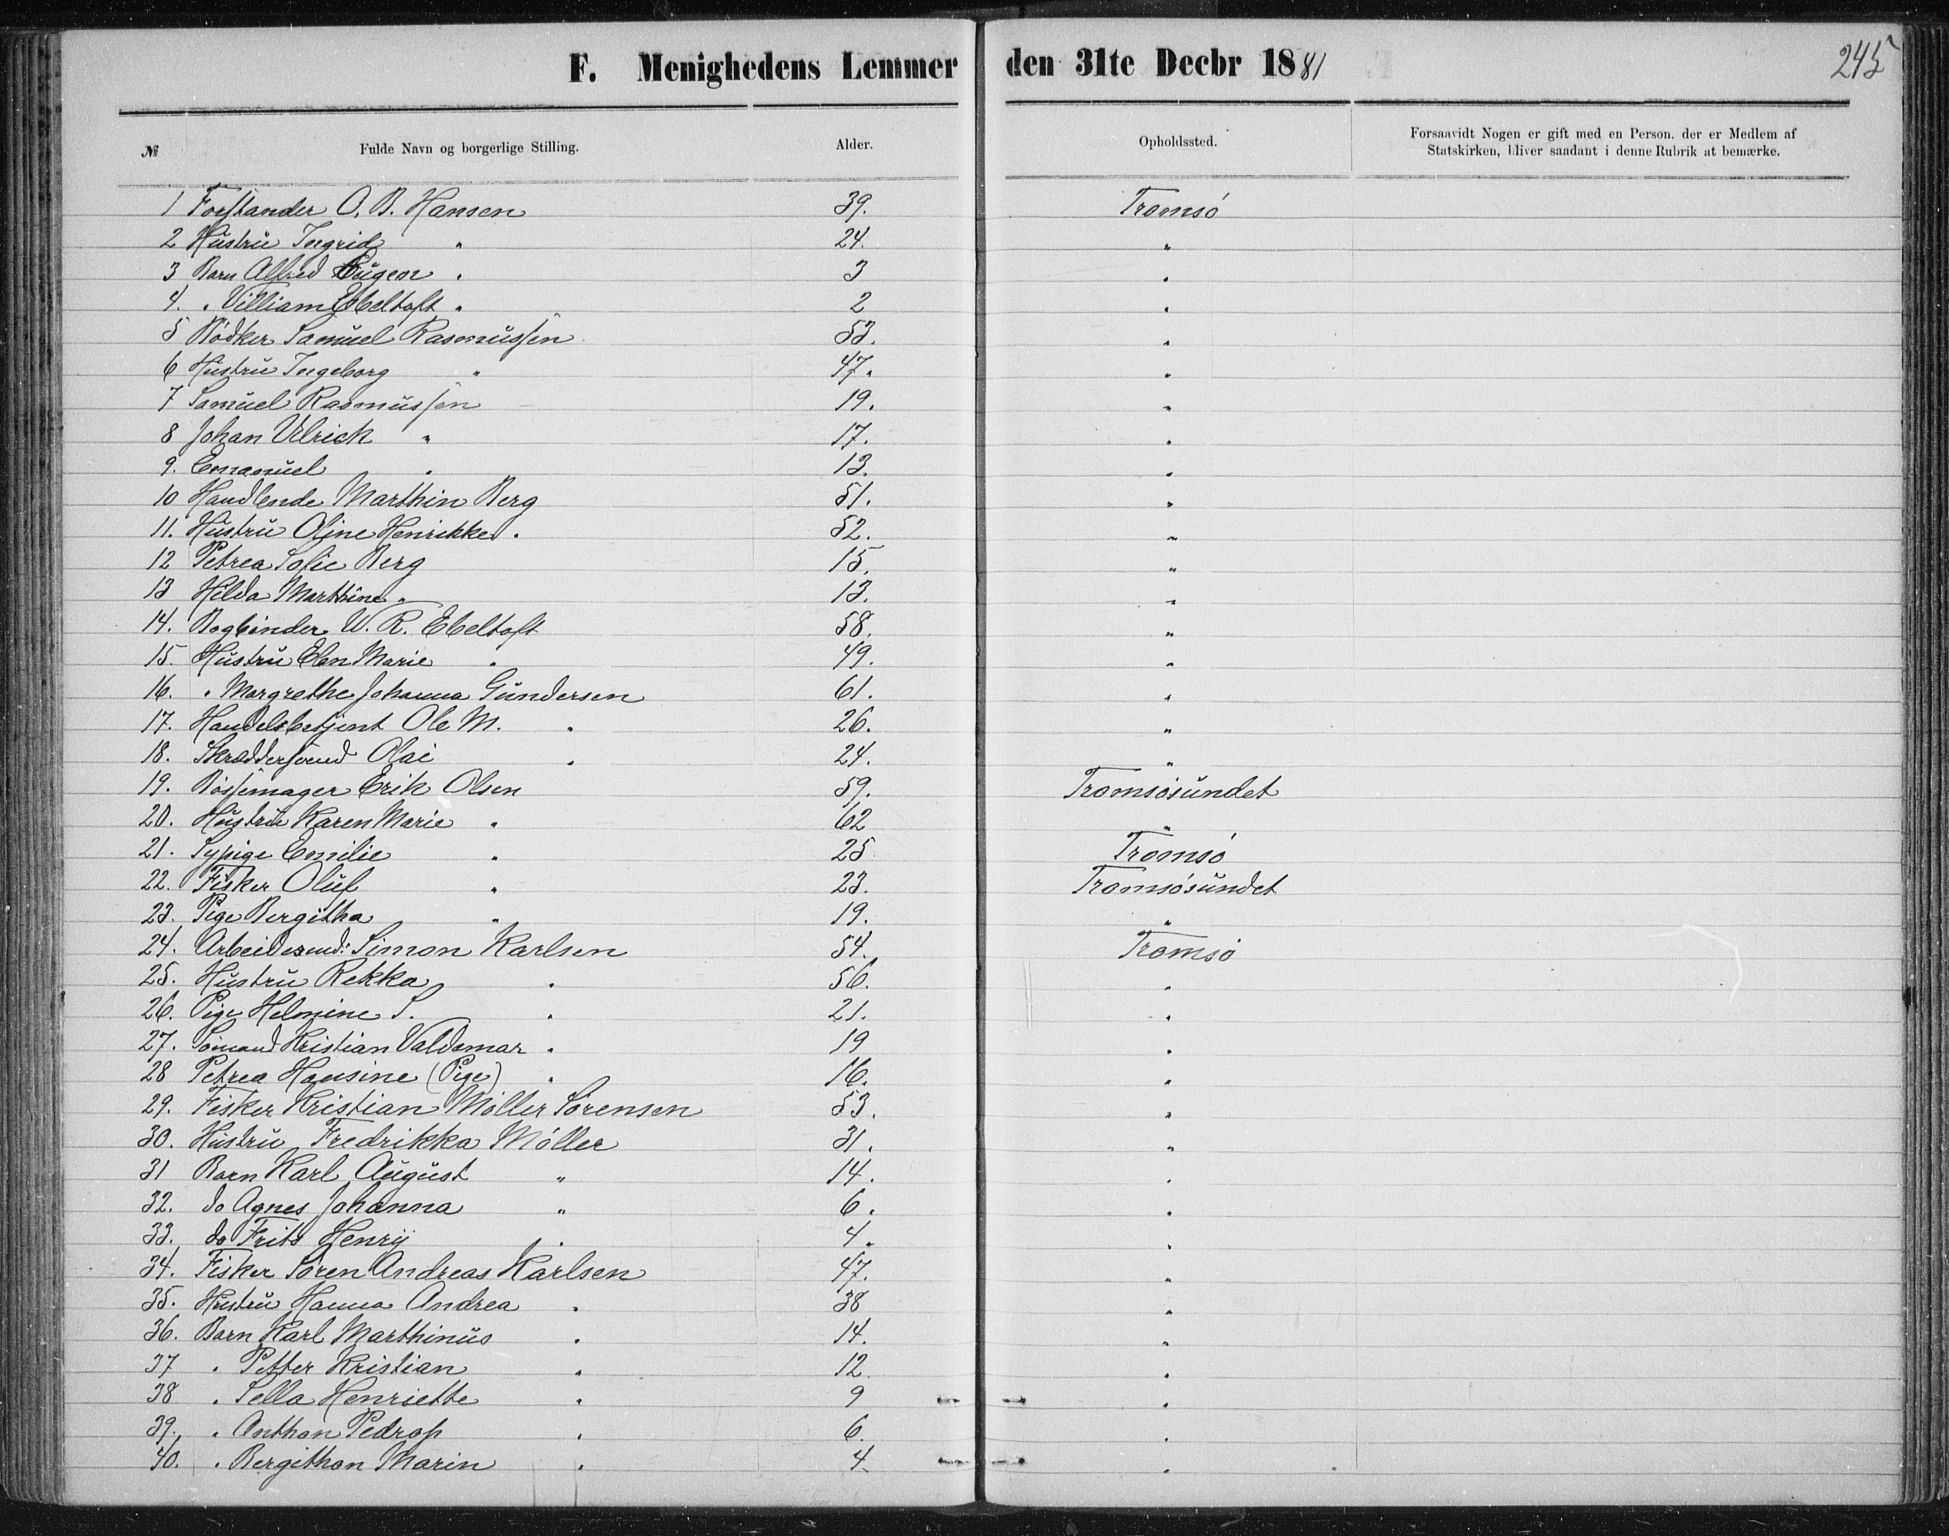 F. Menighedens Lemmer den 31te Decbr 1881 245
№ Fulde Navn og borgerlige Stilling. Alder. Opholdssted. Forsaavidt Nogen er gift med en Person, der er Medlem af Statskirken, bliver saadant i denne Rubrik at bemærke.
1 Forstander O. B. Hansen 39. Tromsø
2 Hustru Ingrid " 24. "
3 Barn Alfred Eugen " 3 "
4. " Villiam Ebeltoft " 2 "
5 Bødker Samuel Rasmussen 53. "
6 Hustru Ingeborg " 47. "
7 Samuel Rasmussen 19. "
8 Johan Ulrick " 17. "
9. Emanuel " 13. "
10 Handlende Marthin Berg 51. "
11. Hustru Oline Henrikke " 52. "
12 Petrea Sofie Berg 15. "
13 Hilda Marthine " 13. "
14. Bogbinder W. R. Ebeltoft 58. "
15. Hustru Elen Marie " 49. "
16. " Margrethe Johanna Gundersen 61. "
17. Handelsbetjent Ole M. " 26. "
18. Skræddersvend Olai " 24. "
19. Bøssemager Erik Olsen 59. Tromsøsundet
20. Hustru Karen Marie " 62 "
21. Sypige Emilie " 25 Tromsø
22. Fisker Oluf " 23. Tromsøsundet
23. Pige Bergitha " 19. "
24. Arbeidsmd: Simon Karlsen 54. Tromsø
25. Hustru Rekka " 56. "
26. Pige Helmine S. " 21. "
27. Sømand Kristian Valdemar " 19 "
28 Petrea Hansine (Pige) " 16. "
29. Fisker Kristian Møller Sørensen 53. "
30. Hustru Fredrikka Møller 31. "
31 Barn Karl August " 14. "
32. do Agnes Johanna " 6. "
33. do Frits Henrij " 4. "
34. Fisker Søren Andreas Karlsen 47. "
35. Hustru Hanna Andrea " 38 "
36. Barn Karl Marthinus " 14. "
37 " Petter Kristian " 12. "
38 " Sella Henriette " 9 "
39. " Anthon " 6. "
40. " Bergithon Marin " 4 "